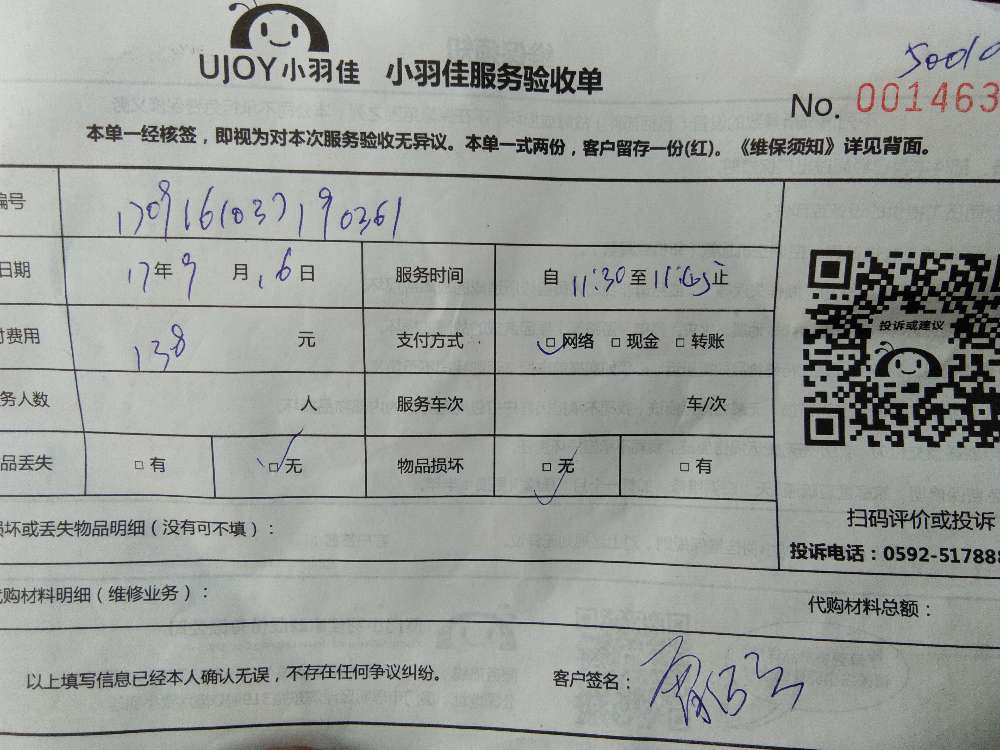 UJOY小羽佳 小羽佳服务验收单
No. 001463
本单一经核签，即视为对本次服务验收无异议。本单一式两份，客户留存一份(红)。《维保须知》详见背面。
编号 1709161037190361
日期 17年9月16日 服务时间 自11:30至11:45止
付费用 138 元 支付方式 □网络 □现金 □转账
务人数 人 服务车次 车/次
品丢失 □有 □无 物品损坏 □无 □有
投诉或建议
扫码评价或投诉
损坏或丢失物品明细（没有可不填）：
投诉电话：0592-517888
代购材料明细（维修业务）：
代购材料总额：
以上填写信息已经本人确认无误，不存在任何争议纠纷。
客户签名：